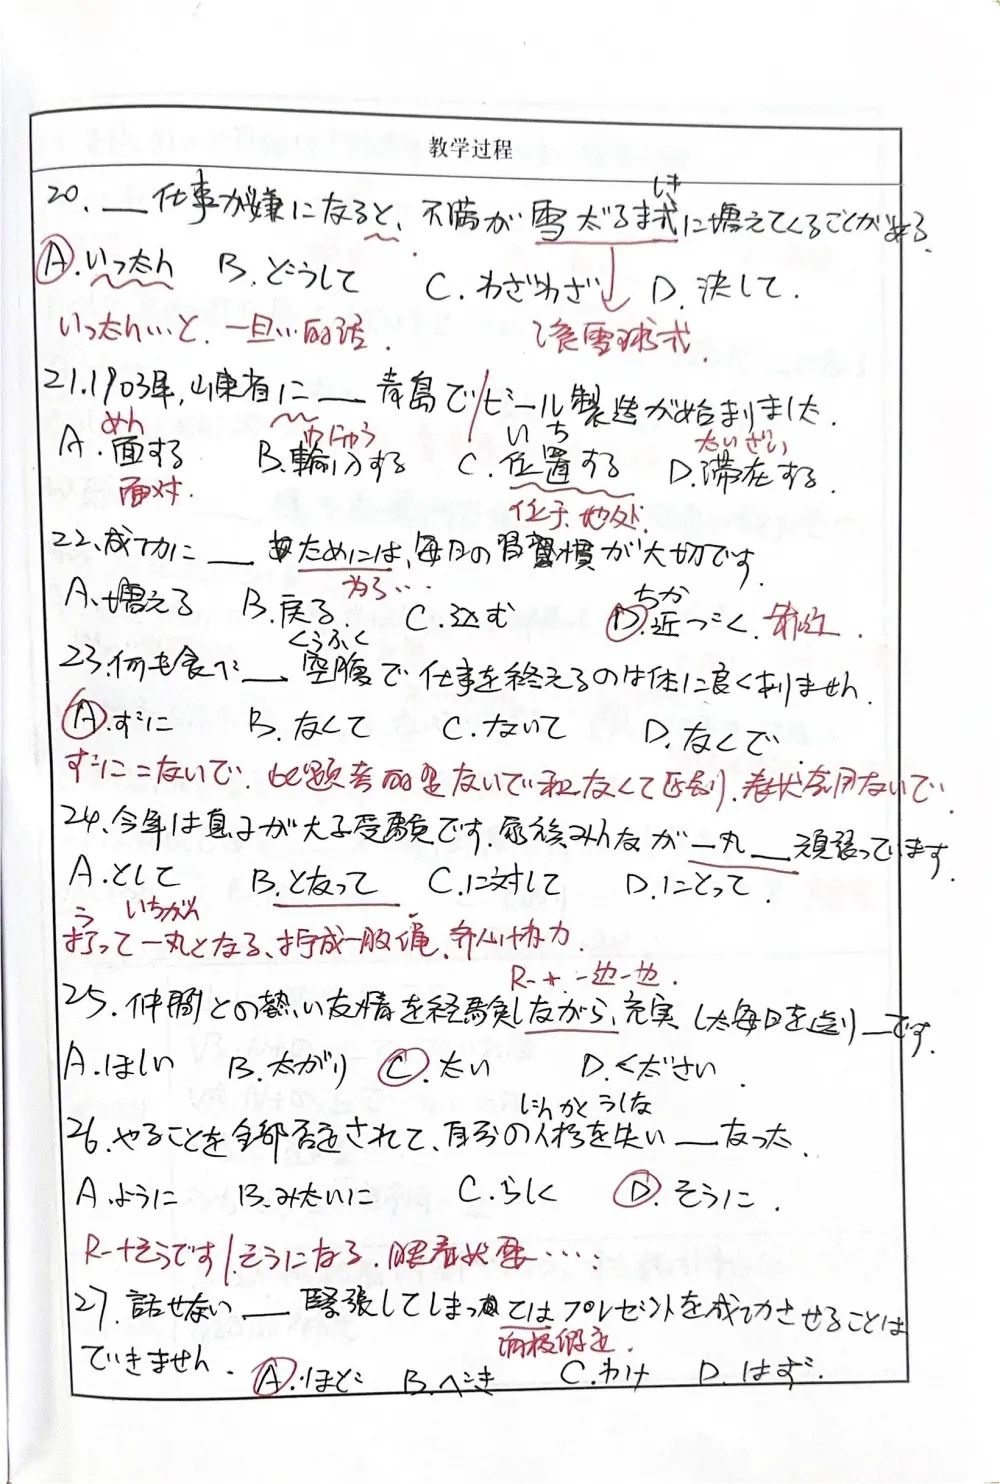 教学过程
20. __仕事が嫌になると、不満が雪だるま式に増えてくることがある.
しき
A.いったん B.どうして C.わざわざ D.決して.
いったん…と.一旦…的话. 滚雪球式.
21.1903年,山東省に__青島でビール製造が始まりました.
めん ゆにゅう いち たいざい
A.面する B.輸入する C.位置する D.滞在する.
面对. 位于.地处.
22.成功に__ためには,毎日の習慣が大切です.
为了…
A.増える B.戻る C.込む D.近づく.靠近.
ちか
くうふく
23.何も食べ__空腹で仕事を終えるのは体に良くありません.
A.ずに B.なくて C.ないて D.なくで.
ずに=ないで.此题考的是ないで和なくて区别.表状态用ないで.
24.今年は息子が大学受験です.家族みんなが一丸__頑張っています.
A.として B.となって C.に対して D.にとって.
う いちがん
打って一丸となる、拧成一股绳,齐心协力.
R-+.一边一边.
25.仲間との熱い友情を経験しながら,充実した毎日を送り__です.
A.ほしい B.たがり C.たい D.ください.
じんかく うしな
26.やることを全部否定されて,自分の人格を失い__なった.
A.ように B.みたいに C.らしく D.そうに.
R-+そうです/そうになる.眼看就要…
27.話せない__緊張してしまってはプレゼントを成功させることは
消极假定.
できません.
A.ほど B.べき C.わけ D.はず.